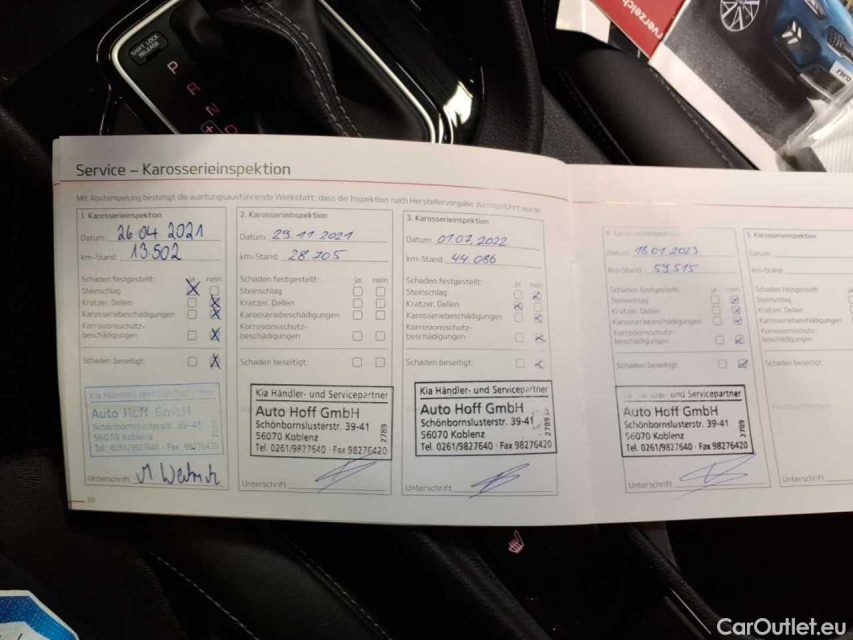 SHIFT LOCK
RELEASE
P
R
N
D
Service – Karosserieinspektion
Mit Abstempelung bestätigt die wartungsausführende Werkstatt, dass die Inspektion nach Herstellervorgabe durchgeführt wurde.
1. Karosserieinspektion
Datum: 26.04 2021
km-Stand: 13.502
Schaden festgestellt: ja nein
Steinschlag
Kratzer, Dellen
Karosseriebeschädigungen
Korrosionsschutz-
beschädigungen
Schaden beseitigt:
Kia Händler- und Servicepartner
Auto Hoff GmbH
Schönbornslusterstr. 39-41
56070 Koblenz
Tel. 0261/9827640 · Fax 98276420
Unterschrift
20
2. Karosserieinspektion
Datum: 29.11 2021
km-Stand: 28.705
Schaden festgestellt: ja nein
Steinschlag
Kratzer, Dellen
Karosseriebeschädigungen
Korrosionsschutz-
beschädigungen
Schaden beseitigt:
Kia Händler- und Servicepartner
Auto Hoff GmbH
Schönbornslusterstr. 39-41
56070 Koblenz
Tel. 0261/9827640 · Fax 98276420
2789
Unterschrift
3. Karosserieinspektion
Datum: 01.07. 2022
km-Stand: 44.086
Schaden festgestellt: ja nein
Steinschlag
Kratzer, Dellen
Karosseriebeschädigungen
Korrosionsschutz-
beschädigungen
Schaden beseitigt:
Kia Händler- und Servicepartner
Auto Hoff GmbH
Schönbornslusterstr. 39-41
56070 Koblenz
Tel. 0261/9827640 · Fax 98276420
2789
Unterschrift
4. Karosserieinspektion
Datum: 18.01 2023
km-Stand: 59.515
Schaden festgestellt: ja nein
Steinschlag
Kratzer, Dellen
Karosseriebeschädigungen
Korrosionsschutz-
beschädigungen
Schaden beseitigt:
Servicepartner
Auto Hoff GmbH
Schönbornslusterstr. 39-41
56070 Koblenz
Tel. 0261/9827640 · Fax 98276420
2789
Unterschrift
5. Karosserieinspektion
Datum:
km-Stand:
Schaden festgestellt:
Steinschlag
Kratzer, Dellen
Karosseriebeschädigungen
Korrosionsschutz-
beschädigungen
Schaden beseitigt:
Unterschrift
CarOutlet.eu